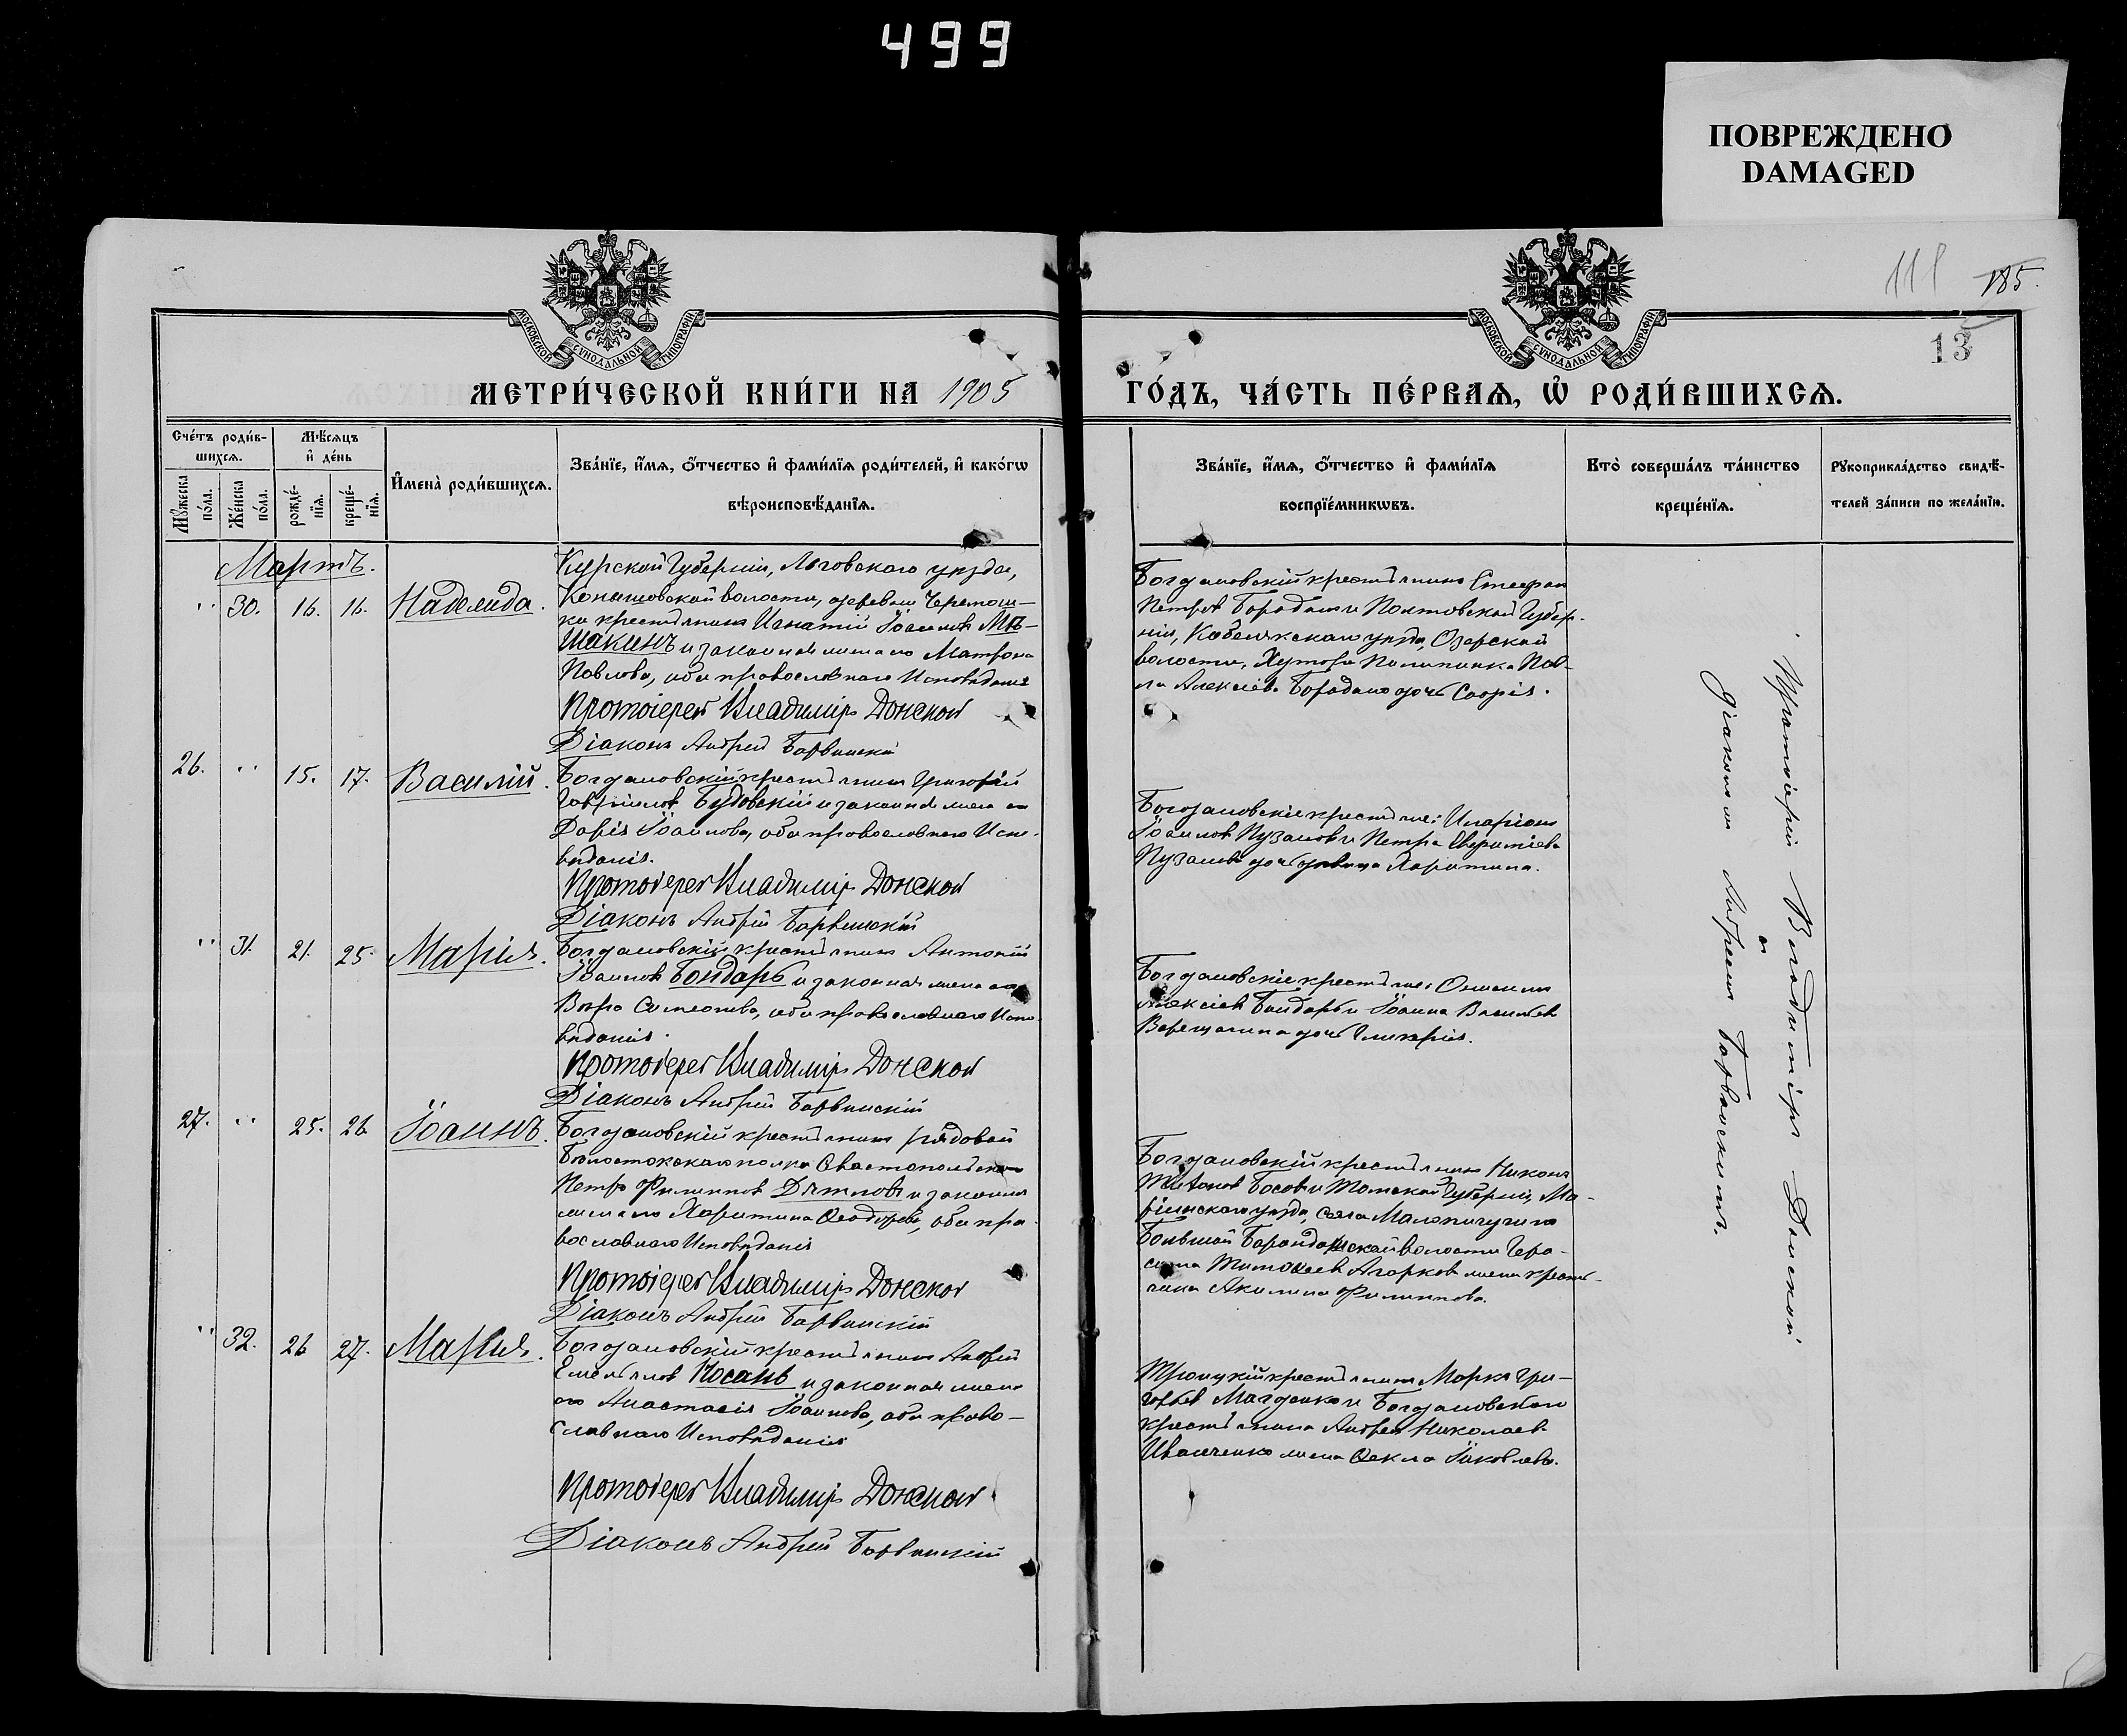 499
ПОВРЕЖДЕНО
DAMAGED
111 185.
13
МОСКОВСКОЙ СѴНОДАЛЬНОЙ ТИПОГРАФІИ
МОСКОВСКОЙ СѴНОДАЛЬНОЙ ТИПОГРАФІИ
МЕТРИ́ЧЕСКОЙ КНИ́ГИ НА 1905
ГО́ДЪ, ЧА́СТЬ ПЕ́РВАѦ, Ѡ РОДИ́ВШИХСѦ.
Сче́тъ роди́в-
шихсѧ.
Мꙋ́жеска по́ла.
Же́нска по́ла.
Мѣ́сѧцъ
и҆ де́нь
рожде́-
нїѧ.
креще́-
нїѧ.
И҆мена̀ роди́вшихсѧ.
Зва́нїе, и҆́мѧ, ѻ҆́тчество и҆ фами́лїѧ роди́телей, и҆ како́гѡ
вѣроисповѣ́данїѧ.
Зва́нїе, и҆́мѧ, ѻ҆́тчество и҆ фами́лїѧ
воспрїе́мникѡвъ.
Кто̀ соверша́лъ та́инство
креще́нїѧ.
Рꙋкоприкла́дство свидѣ́-
телей за́писи по жела́нїю.
Мартъ.
" 30. 16. 16. Надежда.
Курской Губерніи, Льговскаго уѣзда,
Конышовской волости, деревни Черемош-
ки крестьянинъ Игнатій Іоанновъ Мѣ-
шакинъ и законная жена его Матрона
Павлова, оба православнаго Исповѣданія
Протоіерей Владимиръ Донской
Діаконъ Андрей Барвинскій
Богдановскій крестьянинъ Стефан
Петровъ Бородань и Полтовской Губер-
ніи, Кобелякскаго уѣзда, Озерской
волости, Хутора Павла Алексіева Бородань дочь Софія.
26. " 15. 17. Василій.
Богдановскій крестьянинъ Григорій
Гавріиловъ Будовскій и законная жена его
Дарія Іоаннова, оба православнаго Испо-
вѣданія.
Протоіерей Владимиръ Донской
Діаконъ Андрей Барвинскій
Богдановскіе крестьяне: Иларіонъ
Іоанновъ Пузановъ и Петра
Пузанова дочь дѣвица Харитина.
" 31. 21. 25. Марія.
Богдановскій крестьянинъ Антоній
Іоанновъ Бондарь и законная жена его
Вѣра Симеонова, оба православнаго Испо-
вѣданія.
Протоіерей Владимиръ Донской
Діаконъ Андрей Барвинскій
Богдановскіе крестьяне: Онисимъ
Алексіевъ Бондарь и Іоанна Васильев
Верещагина дочь Гликерія.
27. " 25. 26 Іоаннъ.
Богдановскій крестьянинъ рядовой
Бѣлостокскаго полка
Петръ Филипповъ Дятловъ и законная
жена его Харитина Ѳеодорова, оба пра-
вославнаго Исповѣданія
Протоіерей Владимиръ Донской
Діаконъ Андрей Барвинскій
Богдановскій крестьянинъ Никонъ
Титовъ Босовъ и Томской Губерніи, Ма-
ріинскаго уѣзда, села Малопичугина
Большой Барандатской волости Гера-
сима Тимоѳеев Агаркова жена крестья-
нина Акилина Филиппова.
" 32. 26 27. Марія.
Богдановскій крестьянинъ Андрей
Емельяновъ Носань и законная жена
его Анастасія Іоаннова, оба право-
славнаго Исповѣданія
Протоіерей Владимиръ Донской
Діаконъ Андрей Барвинскій
Троицкій крестьянинъ Марко Гри-
горьев и Богдановскаго
крестьянина Андрея Николаев
Иванченко жена Ѳекла Іаковлева.
Протоіерей Владимиръ Донской
съ
діакономъ Андреемъ Барвинскимъ.